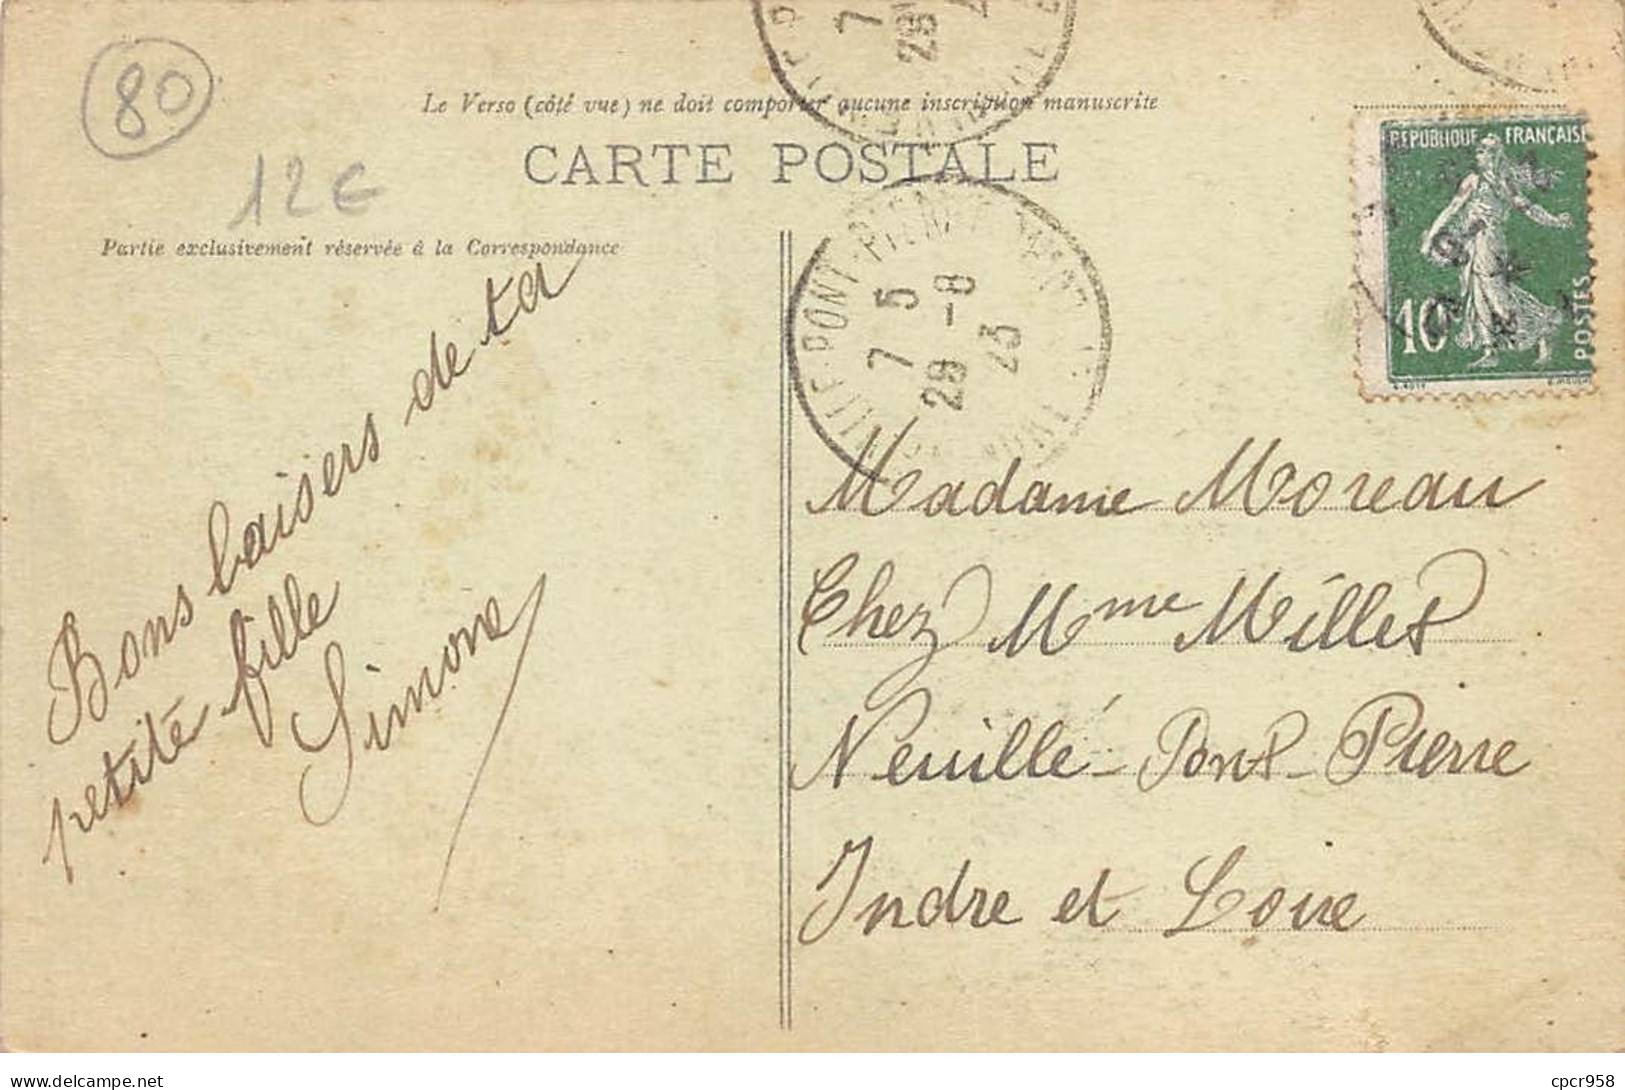 80
12€
Le Verso (côté vue) ne doit comporter aucune inscription manuscrite
CARTE POSTALE
Partie exclusivement réservée à la Correspondance
REPUBLIQUE FRANÇAISE
10
POSTES
7 5
29 - 8
23
Bons baisers de ta
petite fille
Simone
Madame Moreau
Chez Mme Millet
Neuillé-Pont-Pierre
Indre et Loire
delcampe.net
cpcr958